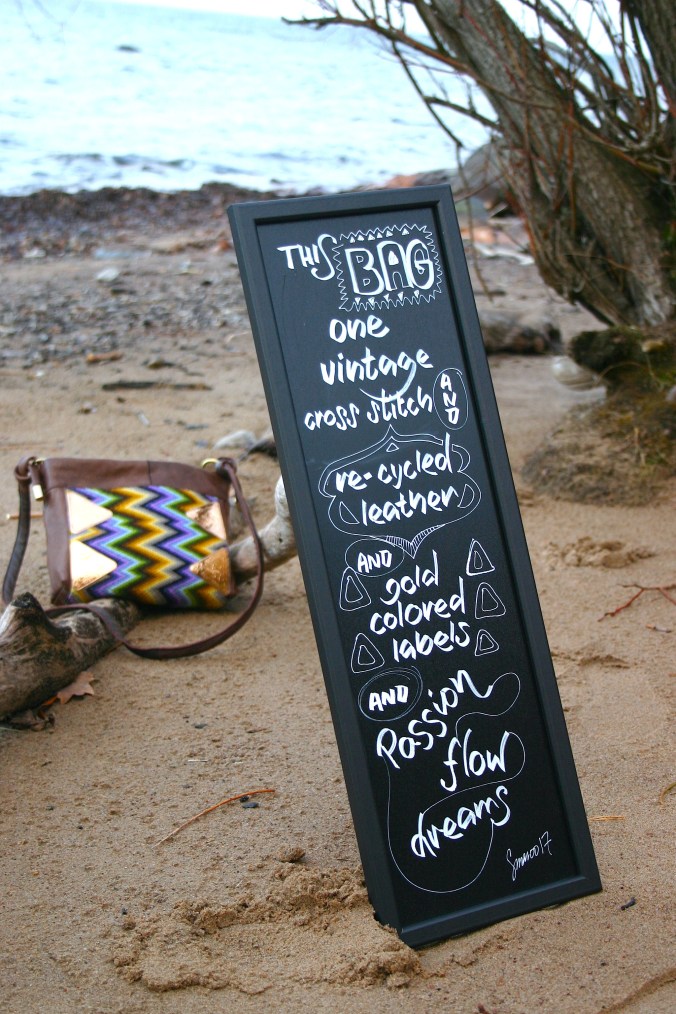 THIS BAG
one
vintage
cross stitch AND
re-cycled
leather
AND
gold
colored
labels
AND
Passion
flow
dreams